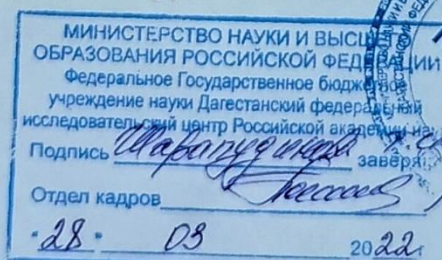 МИНИСТЕРСТВО НАУКИ И ВЫСШ
ОБРАЗОВАНИЯ РОССИЙСКОЙ ФЕДЕРАЦИИ
Федеральное Государственное бюджетное
учреждение науки Дагестанский федеральный
исследовательский центр Российской академии на
Подпись заверяю
Отдел кадров
"28" 03 2022г